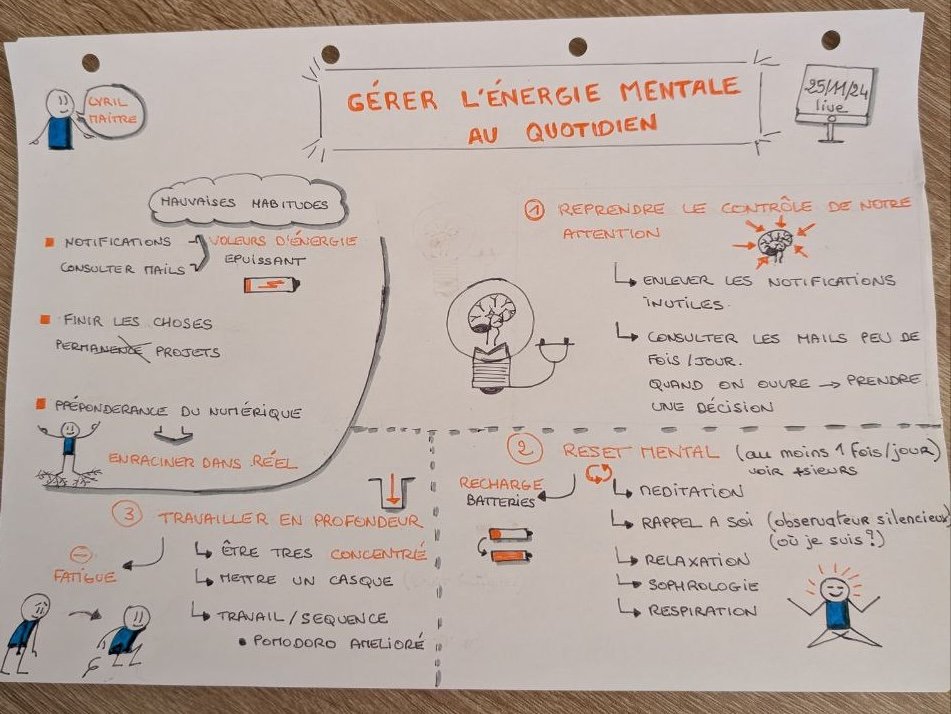 CYRIL
MAÎTRE
GÉRER L'ÉNERGIE MENTALE
AU QUOTIDIEN
25/11/24
live
MAUVAISES HABITUDES
NOTIFICATIONS
CONSULTER MAILS
VOLEURS D'ÉNERGIE
EPUISSANT
FINIR LES CHOSES
PERMANENCE PROJETS
PRÉPONDERANCE DU NUMÉRIQUE
ENRACINER DANS RÉEL
① REPRENDRE LE CONTRÔLE DE NOTRE
ATTENTION
↳ ENLEVER LES NOTIFICATIONS
INUTILES.
↳ CONSULTER LES MAILS PEU DE
FOIS/JOUR.
QUAND ON OUVRE → PRENDRE
UNE DÉCISION
② RESET MENTAL (au moins 1 fois/jour)
voir +sieurs
RECHARGE
BATTERIES
↳ MEDITATION
↳ RAPPEL A SOI (observateur silencieux)
(où je suis?)
↳ RELAXATION
↳ SOPHROLOGIE
↳ RESPIRATION
③ TRAVAILLER EN PROFONDEUR
⊖
FATIGUE
↳ ÊTRE TRES CONCENTRÉ
↳ METTRE UN CASQUE
↳ TRAVAIL/SEQUENCE
• POMODORO AMELIORÉ